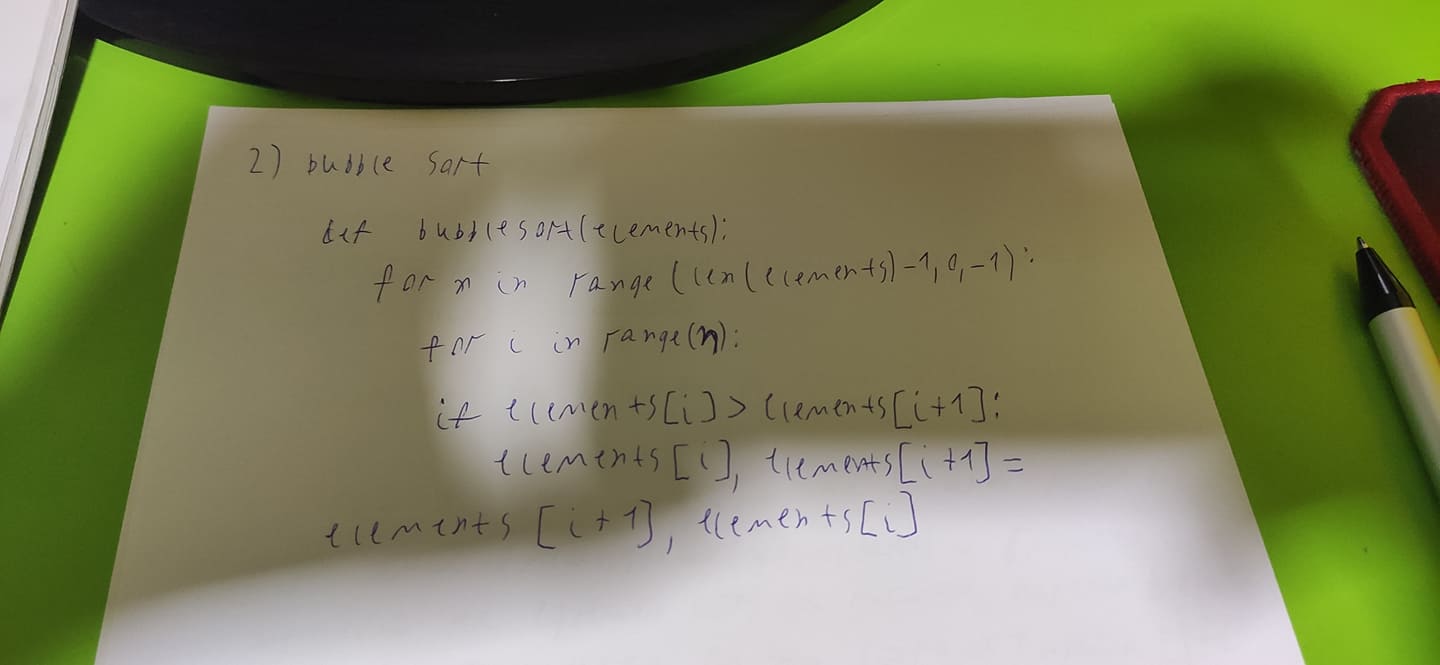 2) bubble sort
def bubblesort(elements):
for n in range(len(elements)-1,0,-1):
for i in range(n):
if elements[i]>elements[i+1]:
elements[i], elements[i+1]=
elements[i+1], elements[i]